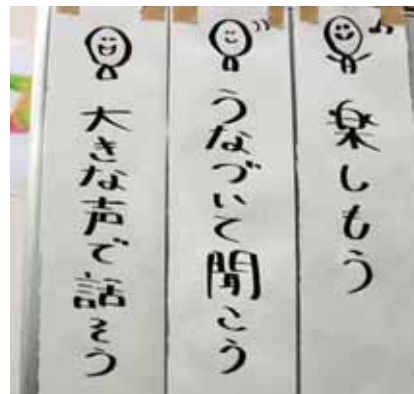 楽しもう
うなづいて聞こう
大きな声で話そう